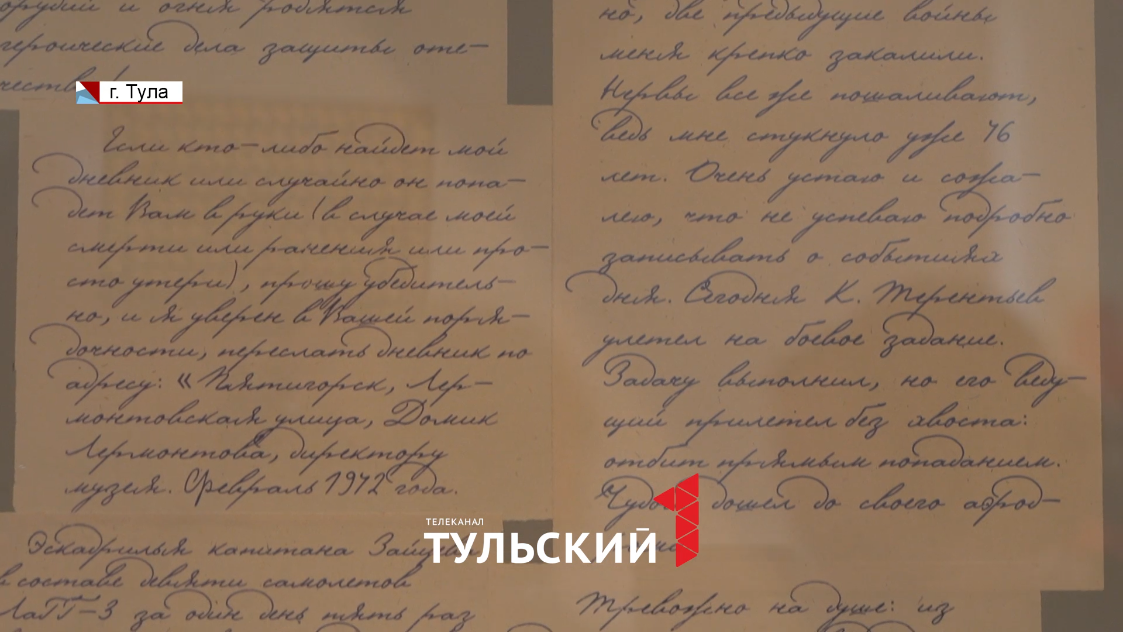 орудий и огня родятся
героические дела защиты оте-
чества!
г. Тула
Если кто-либо найдет мой
дневник или случайно он попа-
дет Вам в руки (в случае моей
смерти или ранения или про-
сто утери), прошу убедитель-
но, и я уверен в Вашей поря-
дочности, переслать дневник по
адресу: «Пятигорск, Лер-
монтовская улица, Домик
Лермонтова, директору
музея. Февраль 1942 года.
Эскадрилья капитана
в составе девяти самолетов
ЛаГГ-3 за один день пять раз
но, две предыдущие войны
меня крепко закалили.
Нервы все же пошаливают,
ведь мне стукнуло уже 46
лет. Очень устаю и сожа-
лею, что не успеваю подробно
записывать о событиях
дня. Сегодня К. Терентьев
улетел на боевое задание.
Задачу выполнил, но его веду-
щий прилетел без хвоста:
отбит прямым попаданием.
Чудом дошел до своего аэрод-
Тревожно на душе: из
ТЕЛЕКАНАЛ
ТУЛЬСКИЙ 1